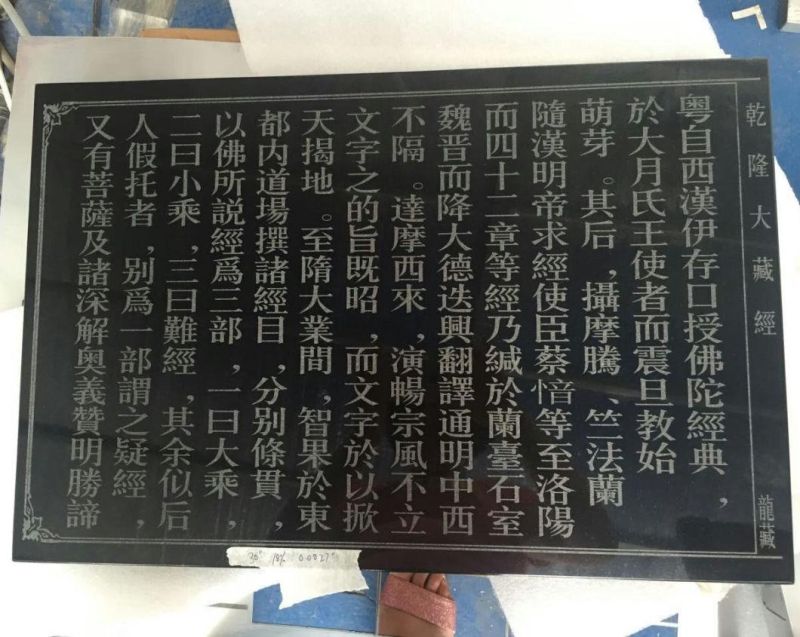 乾隆大藏經
龍藏
粤自西漢伊存口授佛陀經典，
於大月氏王使者而震旦教始
萌芽。其后，攝摩騰、竺法蘭
隨漢明帝求經使臣蔡愔等至洛陽
而四十二章等經乃緘於蘭臺石室
魏晋而降大德迭興翻譯通明中西
不隔。達摩西來，演暢宗風不立
文字之的旨既昭，而文字於以掀
天揭地。至隋大業間，智果於東
都内道場撰諸經目，分别條貫，
以佛所説經爲三部，一曰大乘，
二曰小乘，三曰難經，其余似后
人假托者，别爲一部謂之疑經，
又有菩薩及諸深解奥義贊明勝諦
30" 18% 0.0027"